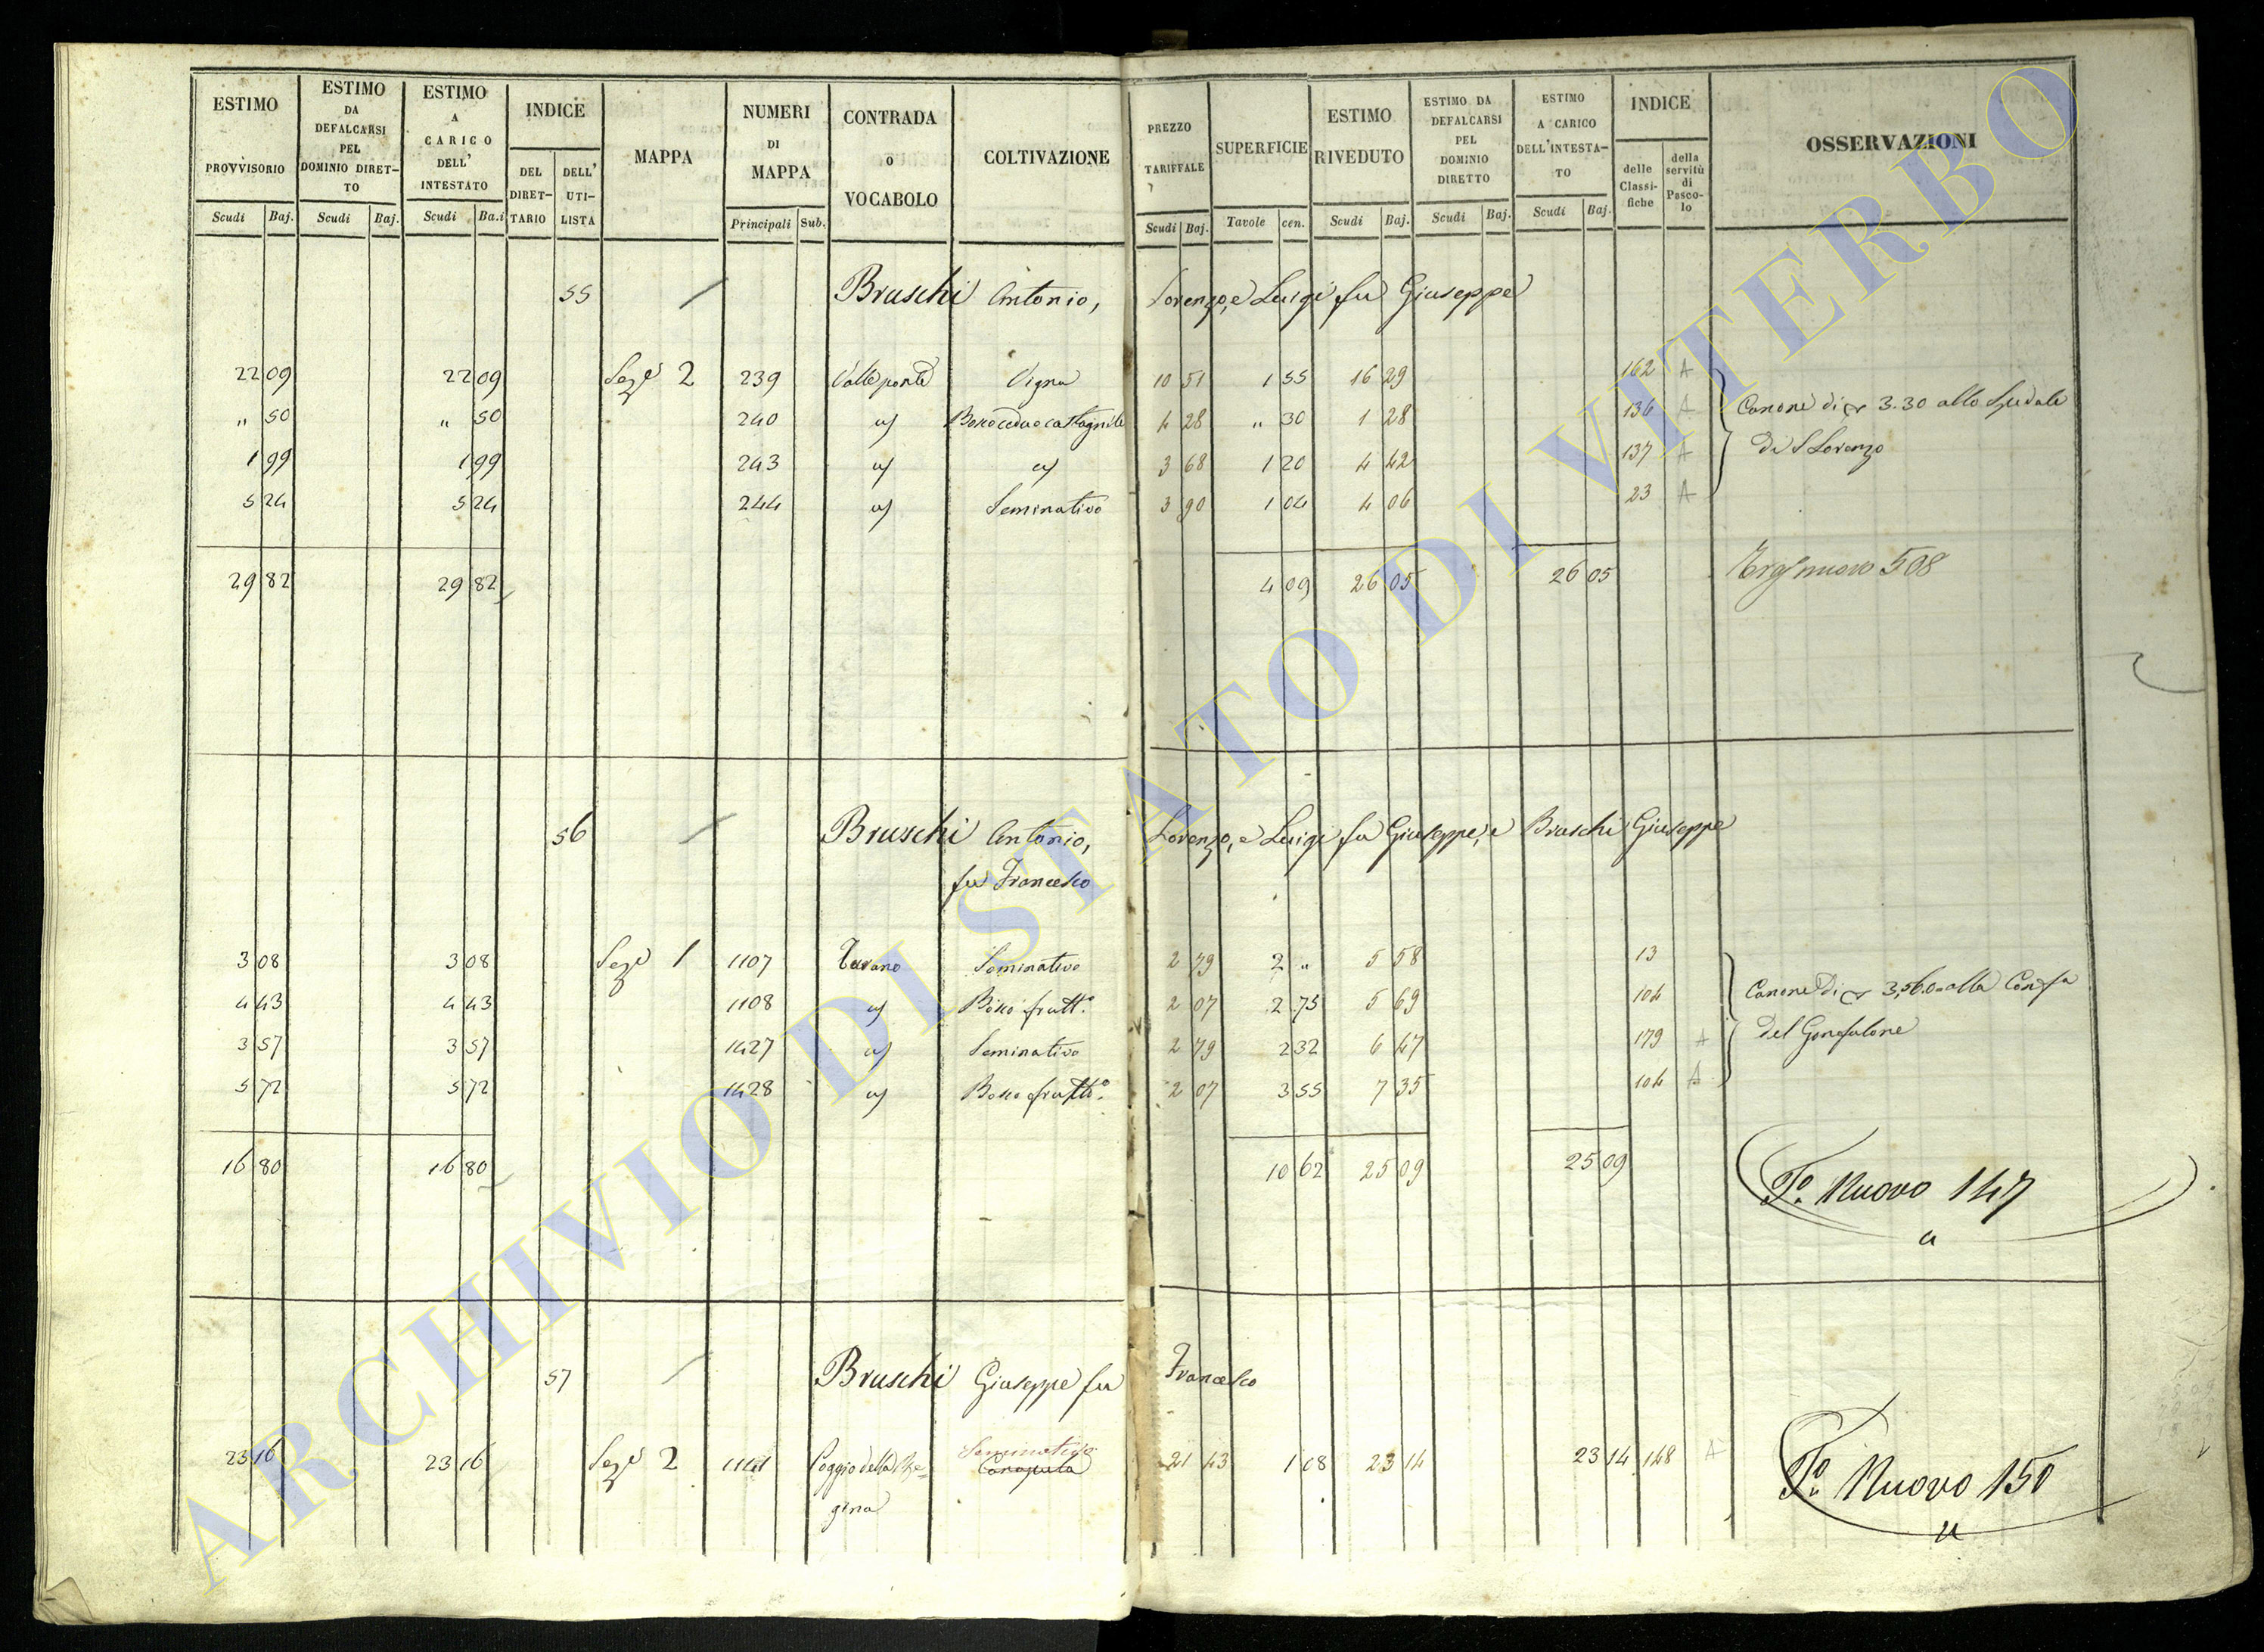 ESTIMO PROVVISORIO
ESTIMO DA DEFALCARSI PEL DOMINIO DIRET-TO
ESTIMO A CARICO DELL' INTESTATO
INDICE
DEL DIRET-TARIO
DELL' UTI-LISTA
MAPPA
NUMERI DI MAPPA
CONTRADA O VOCABOLO
COLTIVAZIONE
PREZZO TARIFFALE
SUPERFICIE
ESTIMO RIVEDUTO
ESTIMO DA DEFALCARSI PEL DOMINIO DIRETTO
ESTIMO A CARICO DELL'INTESTA-TO
INDICE
delle Classi-fiche
della servitù di Pasco-lo
OSSERVAZIONI
Scudi Baj. Scudi Baj. Scudi Ba.i Principali Sub. Scudi Baj. Tavole cen. Scudi Baj. Scudi Baj. Scudi Baj.
55 Bruschi Antonio, Lorenzo, e Luigi fu Giuseppe
22 09 22 09 Seze 2 239 Valleponte Vigna 10 51 1 55 16 29 162 A
" 50 " 50 240 a) Bosco ceduo castagnile 4 28 " 30 1 28 136 A Canone di 3.30 allo Spedale
1 99 1 99 243 a) a) 3 68 1 20 4 42 137 A di S Lorenzo
5 24 5 24 244 a) Seminativo 3 90 1 04 4 06 23 A
29 82 29 82 4 09 26 05 26 05 nuovo 508
56 Bruschi Antonio, Lorenzo, e Luigi fu Giuseppe, e Bruschi Giuseppe
fu Francesco
3 08 3 08 Seze 1 1107 Seminativo 2 79 2 " 5 58 13
4 43 4 43 1108 a) Bosco frutt.o 2 07 2 75 5 69 104 Canone di 3,56.0 alla Confa
3 57 3 57 1427 a) Seminativo 2 79 2 32 6 47 179 A del Gonfalone
5 72 5 72 1428 a) Bosco frutto. 2 07 3 55 7 35 104 A
16 80 16 80 10 62 25 09 25 09
Fo. Nuovo 147
57 Bruschi Giuseppe fu Francesco
Seminativo
23 16 23 16 Seze 2 Poggio della Re= Canapula 21 43 1 08 23 14 23 14 148 A
gina
Fo. Nuovo 150
ARCHIVIO DI STATO DI VITERBO